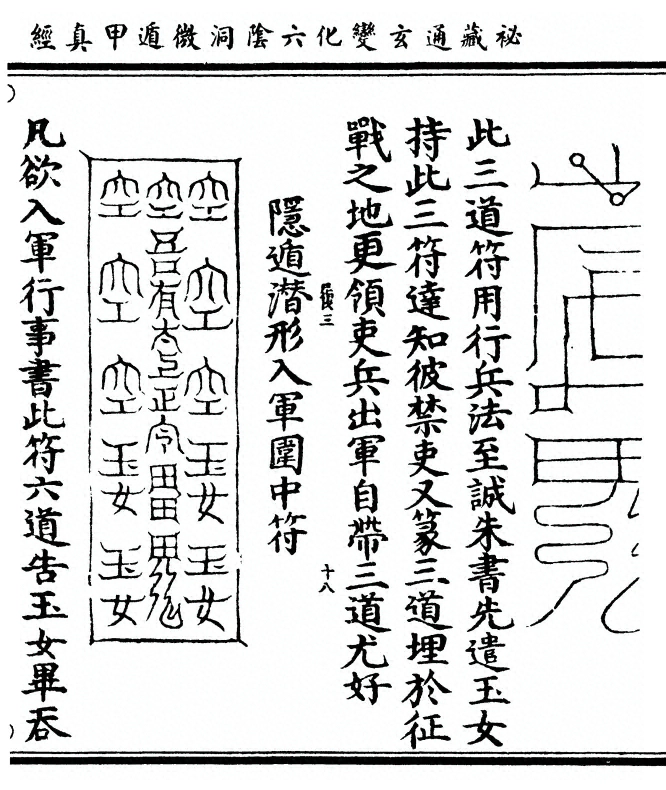 祕藏通玄變化六陰洞微遁甲真經
此三道符用行兵法至誠朱書先遣玉女
持此三符達知彼禁吏又篆三道埋於征
戰之地更領吏兵出軍自帶三道尤好
三 十八
隱遁潜形入軍圍中符
空空空玉女玉女
空
空空空玉女玉女
凡欲入軍行事書此符六道告玉女畢吞